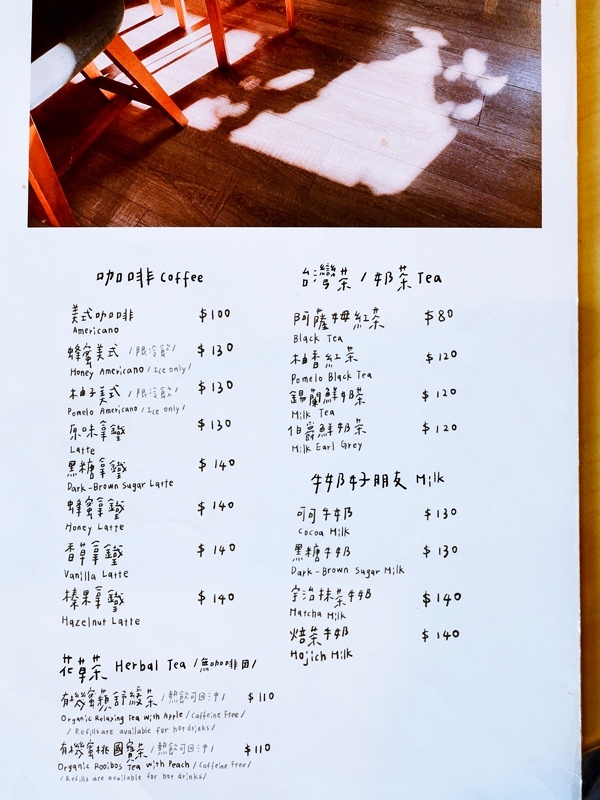 咖啡 Coffee
美式咖啡 $100
Americano
蜂蜜美式 /限冷飲/ $130
Honey Americano /Ice only/
柚子美式 /限冷飲/ $130
Pomelo Americano /Ice only/
原味拿鐵 $130
Latte
黑糖拿鐵 $140
Dark-Brown Sugar Latte
蜂蜜拿鐵 $140
Honey Latte
香草拿鐵 $140
Vanilla Latte
榛果拿鐵 $140
Hazelnut Latte
花草茶 Herbal Tea /無咖啡因/
有機蜜蘋舒緩茶 /熱飲可回沖/ $110
Organic Relaxing Tea with Apple /Caffeine Free/
/Refills are available for hot drinks/
有機蜜桃國寶茶 /熱飲可回沖/ $110
Organic Rooibos Tea with Peach /Caffeine Free/
/Refills are available for hot drinks/
台灣茶 / 奶茶 Tea
阿薩姆紅茶 $80
Black Tea
柚香紅茶 $120
Pomelo Black Tea
錫蘭鮮奶茶 $120
Milk Tea
伯爵鮮奶茶 $120
Milk Earl Grey
牛奶好朋友 Milk
可可牛奶 $130
Cocoa Milk
黑糖牛奶 $130
Dark-Brown Sugar Milk
宇治抹茶牛奶 $140
Matcha Milk
焙茶牛奶 $140
Hojich Milk